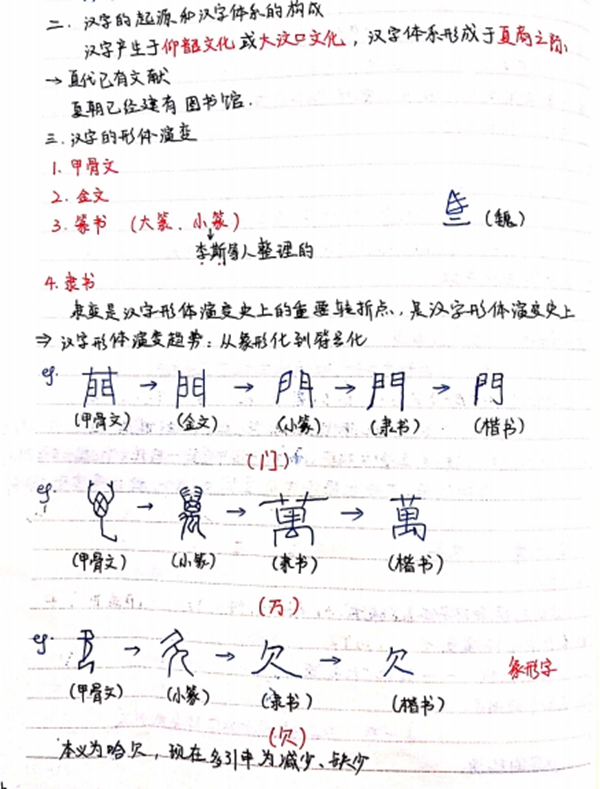 二、汉字的起源和汉字体系的构成
汉字产生于仰韶文化或大汶口文化，汉字体系形成于夏商之际
→ 夏代已有文献
夏朝已经建有图书馆.
三、汉字的形体演变
1. 甲骨文
2. 金文
3. 篆书 （大篆、小篆） （魏）
李斯等人整理的
4. 隶书
隶变是汉字形体演变史上的重要转折点，是汉字形体演变史上
⇒ 汉字形体演变趋势：从象形化到符号化
eg. 門 → 門 → 門 → 門 → 門
（甲骨文） （金文） （小篆） （隶书） （楷书）
（门）
eg. 萬 → 萬 → 萬 → 萬
（甲骨文） （小篆） （隶书） （楷书）
（万）
eg. 欠 → 欠 → 欠 → 欠 象形字
（甲骨文） （小篆） （隶书） （楷书）
（欠）
本义为哈欠，现在多引申为减少、缺少